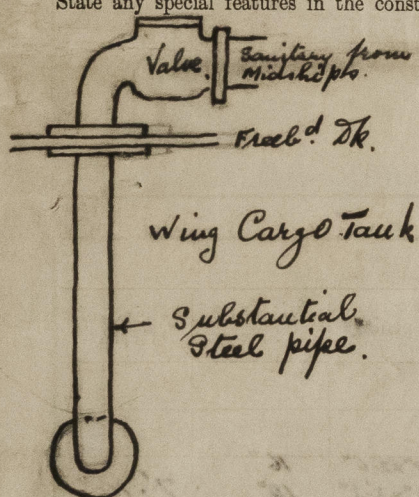 State any special features in the const
Valve.
Sanitary from
Midships.
Freebd. Dk.
Wing Cargo Tank
Substantial
Steel pipe.